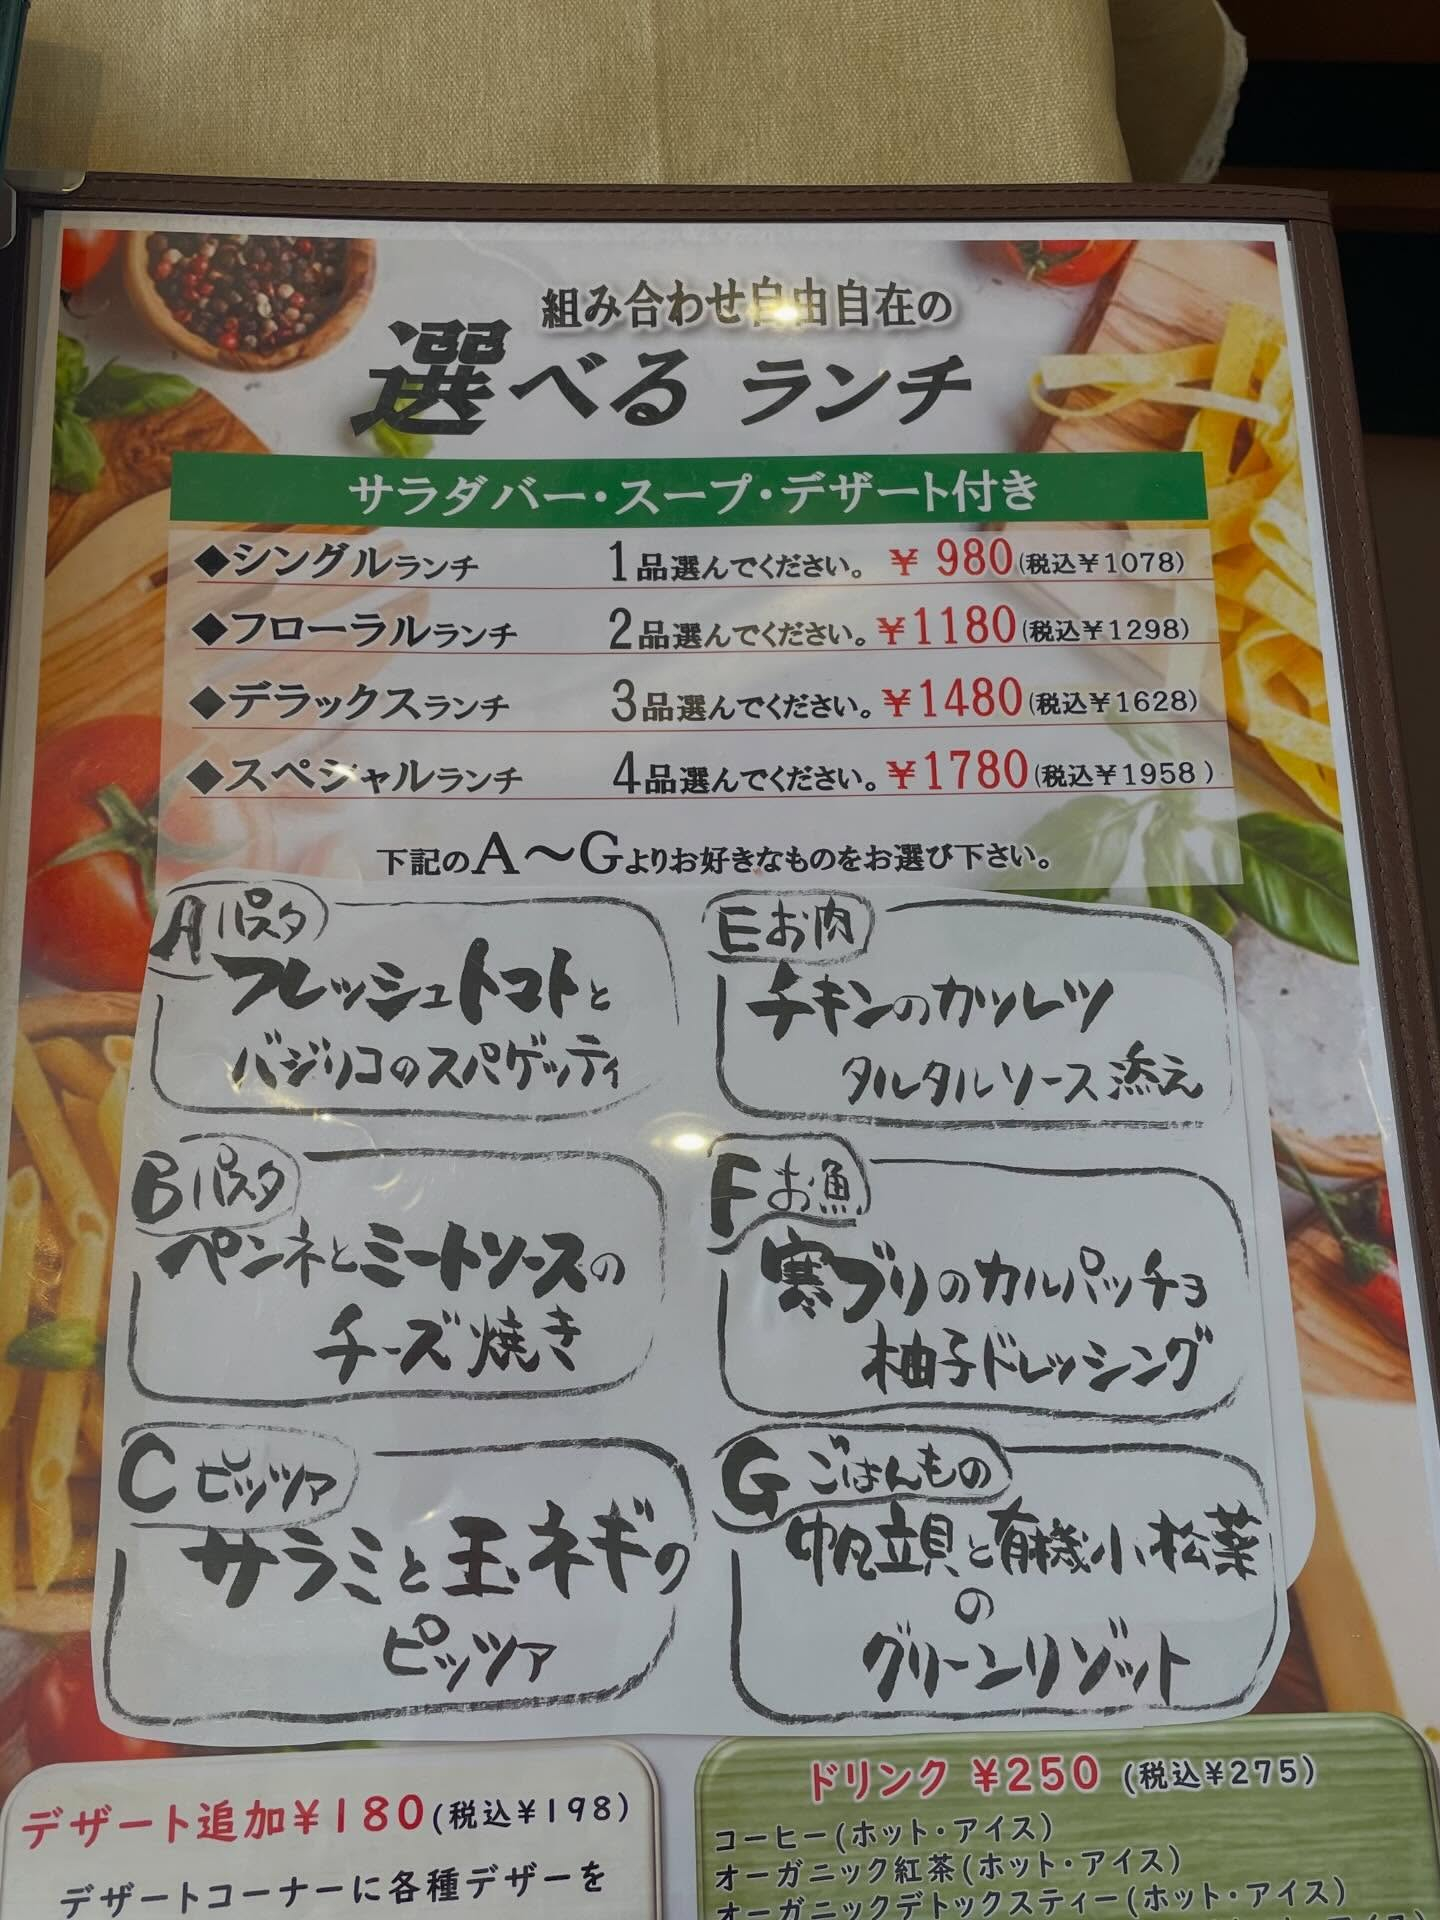 組み合わせ自由自在の
選べる ランチ
サラダバー・スープ・デザート付き
◆シングルランチ 1品選んでください。 ¥ 980(税込¥1078)
◆フローラルランチ 2品選んでください。 ¥1180(税込¥1298)
◆デラックスランチ 3品選んでください。 ¥1480(税込¥1628)
◆スペシャルランチ 4品選んでください。 ¥1780(税込¥1958 )
下記のA～Gよりお好きなものをお選び下さい。
A パスタ
フレッシュトマトと
バジリコのスパゲッティ
B パスタ
ペンネとミートソースの
チーズ焼き
C ピッツァ
サラミと玉ネギの
ピッツァ
E お肉
チキンのカツレツ
タルタルソース添え
F お魚
寒ブリのカルパッチョ
柚子ドレッシング
G ごはんもの
帆立貝と有機小松菜
の
グリーンリゾット
デザート追加¥180(税込¥198)
デザートコーナーに各種デザーを
ドリンク ¥250 (税込¥275)
コーヒー(ホット・アイス)
オーガニック紅茶(ホット・アイス)
オーガニックデトックスティー(ホット・アイス)